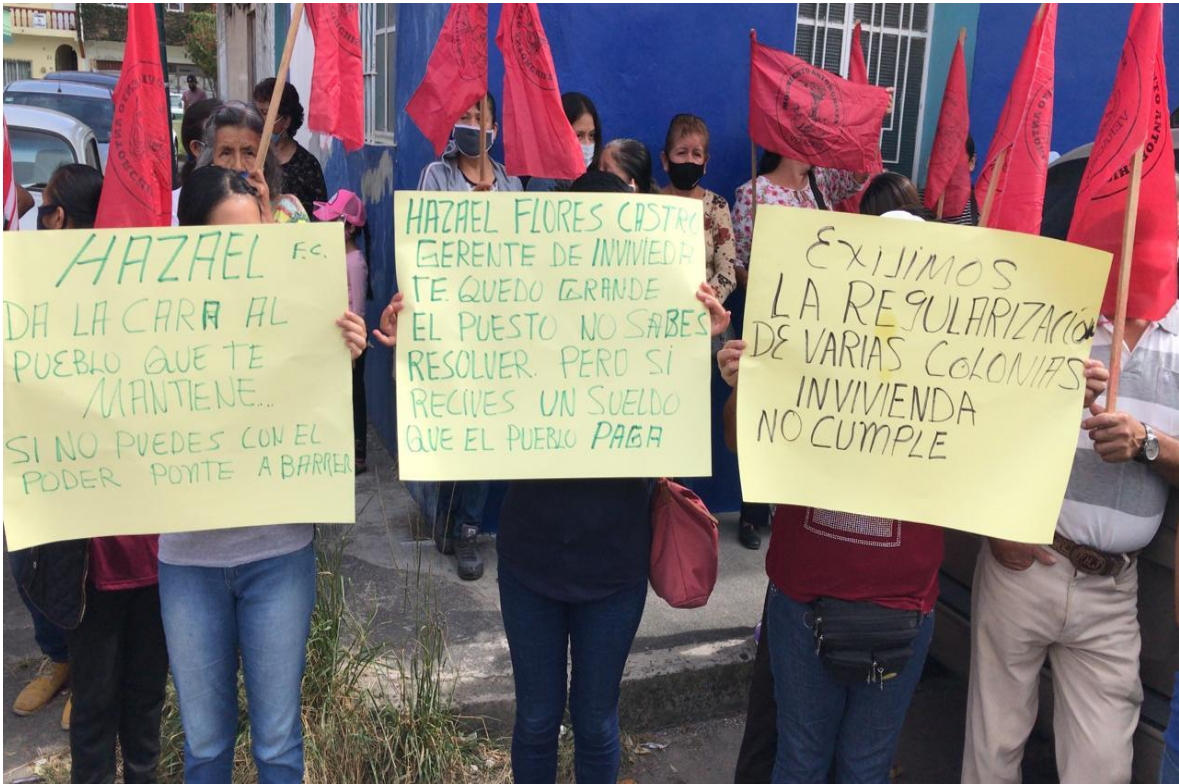 HAZAEL F.C.
DA LA CARA AL
PUEBLO QUE TE
MANTIENE...
SI NO PUEDES CON EL
PODER PONTE A BARRER
HAZAEL FLORES CASTRO
GERENTE DE INVIVIEDA
TE QUEDO GRANDE
EL PUESTO NO SABES
RESOLVER. PERO SI
RECIVES UN SUELDO
QUE EL PUEBLO PAGA
EXIJIMOS
LA REGULARIZACIÓN
DE VARIAS COLONIAS
INVIVIENDA
NO CUMPLE